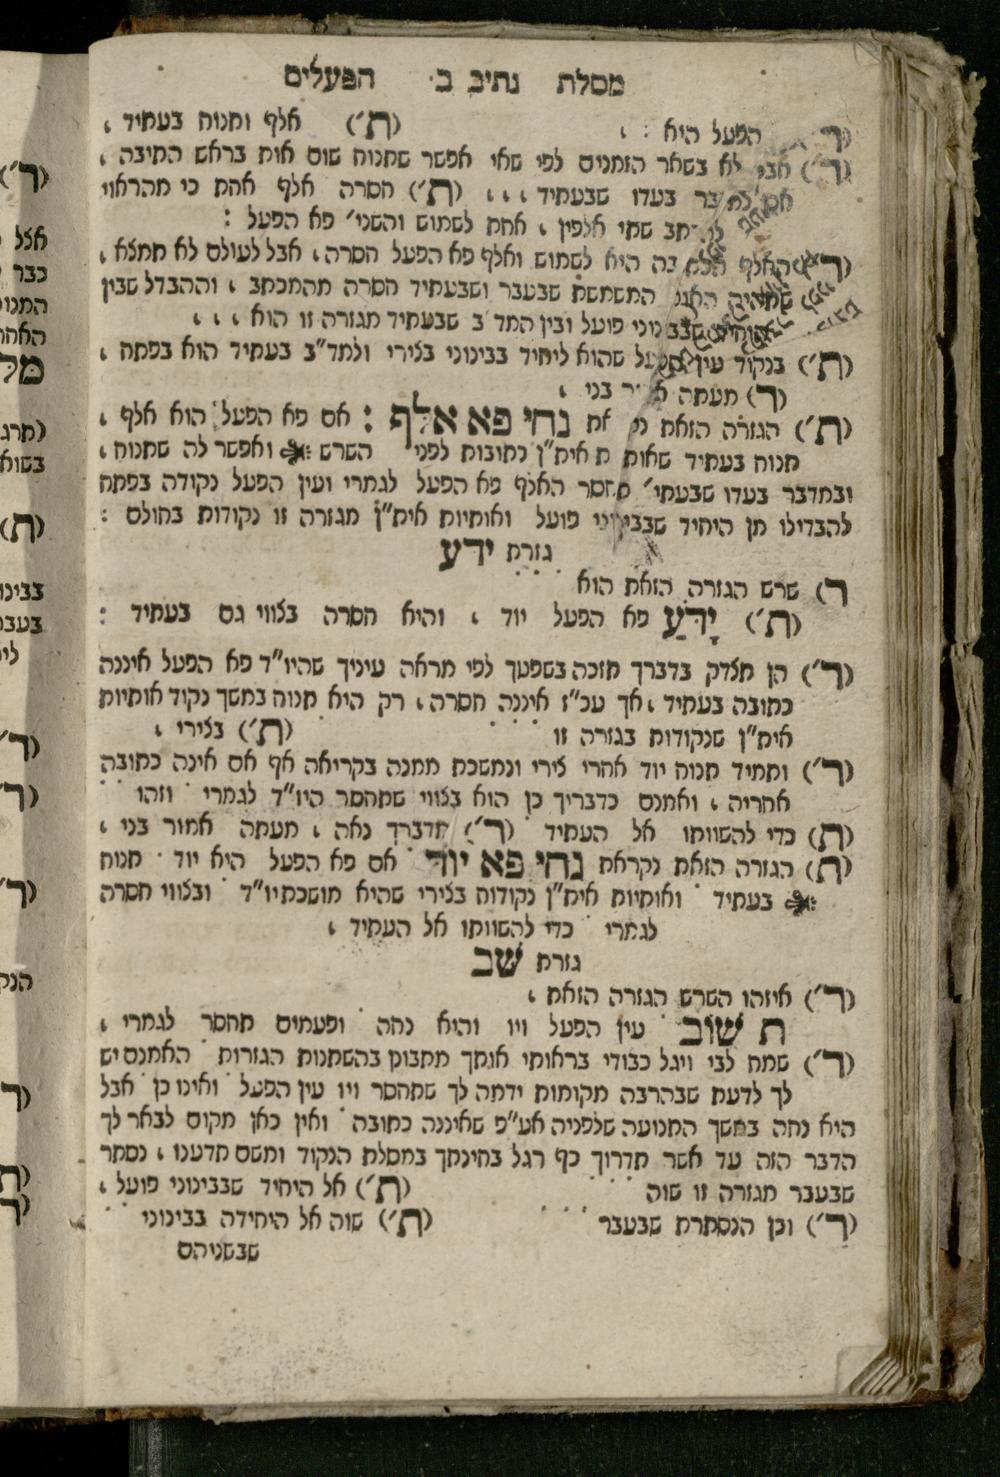 מסלת נתיב ב׳ הפעלים
(ר׳) הפעל היא : (ת׳) אלף ותנוח בעתיד ,
(ר׳) אבל לא בשאר הזמנים לפי שאי אפשר שתנוח שום אות בראש התיבה ,
בעדו שבעתיד , , , (ת׳) חסרה אלף אחת כי מהראוי
שתי אלפין , אחת לשמוש והשני׳ פא הפעל :
(ר׳) האלף היא לשמוש ואלף פא הפעל חסרה , אבל לעולם לא תמצא ,
המשמשת שבעבר ושבעתיד חסרה מהמכתב , וההבדל שבין
פועל ובין המד״ב שבעתיד מגזרה זו הוא , , ,
(ת׳) בנקוד עין הפעל שהוא ליחיד בבינוני בצירי ולמד״ב בעתיד הוא בפתח ,
(ר) מעתה בני ,
(ת׳) הגזרה הזאת נחי פא אלף : אם פא הפעל הוא אלף ,
תנוח בעתיד אית״ן כתובות לפני השרש ואפשר לה שתנוח ,
ובמדבר בעדו שבעתי׳ תחסר האלף פא הפעל לגמרי ועין הפעל נקודה בפתח
להבדילו מן היחיד שבבינוני פועל ואותיות אית״ן מגזרה זו נקודות בחולם :
גזרת ידע
ר) שרש הגזרה הזאת הוא
(ת׳) יָדַע פא הפעל יוד , והיא חסרה בצווי גם בעתיד :
(ר׳) הן תצדק בדברך תזכה בשפטך לפי מראה עיניך שהיו״ד פא הפעל איננה
כתובה בעתיד , אך עכ״ז איננה חסרה , רק היא תנוח במשך נקוד אותיות
אית״ן שנקודות בגזרה זו (ת׳) בצירי ,
(ר׳) ותמיד תנוח יוד אחרי צירי ונמשכת ממנה בקריאה אף אם אינה כתובה
אחריה , ואמנם כדבריך כן הוא בצווי שתחסר היו״ד לגמרי וזהו
(ת) כדי להשוותו אל העתיד (ר׳) תדברך נאה , מעתה אמור בני ,
(ת) הגזרה הזאת נקראת נחי פא יוד אם פא הפעל היא יוד תנוח
בעתיד ואותיות אית״ן נקודות בצירי שהיא מושכת יו״ד ובצווי חסרה
לגמרי כדי להשוותו אל העתיד ,
גזרת שב
(ר׳) איזהו השרש הגזרה הזאת ,
ת שוב עין הפעל ויו והיא נחה ופעמים תחסר לגמרי ,
(ר׳) שמח לבי ויגל כבודי בראותי אותך מתבונן בהשתנות הגזרות האמנם יש
לך לדעת שבהרבה מקומות ידמה לך שתחסר ויו עין הפעל ואינו כן אבל
היא נחה במשך התנועה שלפניה אע״פ שאיננה כתובה ואין כאן מקום לבאר לך
הדבר הזה עד אשר תדרוך כף רגל בחינתך במסלת הנקוד ומשם תדענו , נסתר
שבעבר מגזרה זו שוה (ת׳) אל היחיד שבבינוני פועל ,
(ר׳) וכן הנסתרת שבעבר (ת׳) שוה אל היחידה בבינוני
שבשניהם